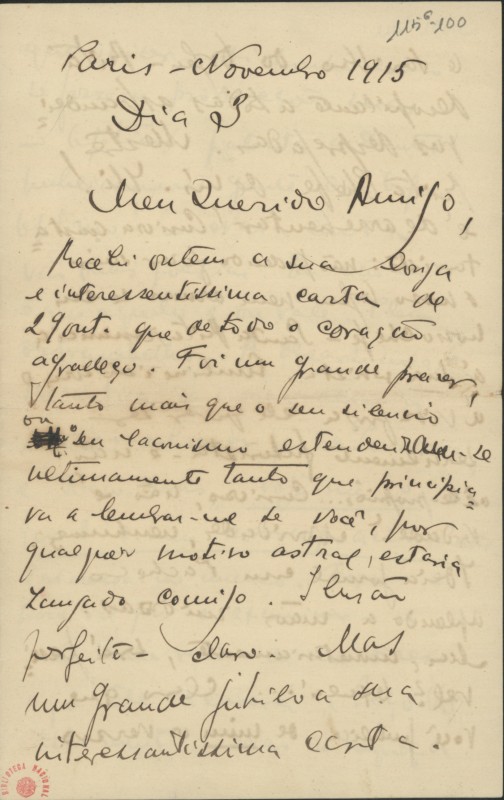 115⁶-100
Paris – Novembro 1915
Dia 3
Meu Querido Amigo,
Recebi ontem a sua longa
e interessantissima carta de
29 out. que de todo o coração
agradeço. Foi um grande prazer,
tanto mais que o seu silencio
ou
seu laconismo -se
ultimamente tanto que principia=
va a lembrar-me se você, por
qualquer motivo astral, estaria
zangado comigo. Ilusão
perfeita – claro. Mas
um grande jubilo a sua
interessantissima carta.
BIBLIOTECA NACIONAL